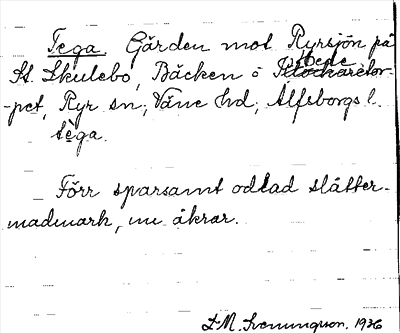 Tega. Gården mot Ryrsjön på
St. Skulebo, Bäcken o
-pet, Ryr sn; Väne hd; Älfsborgs l.
tèga.
Förr sparsamt odlad slåtter-
madmark, nu åkrar.
L-M. Svenungson. 1926